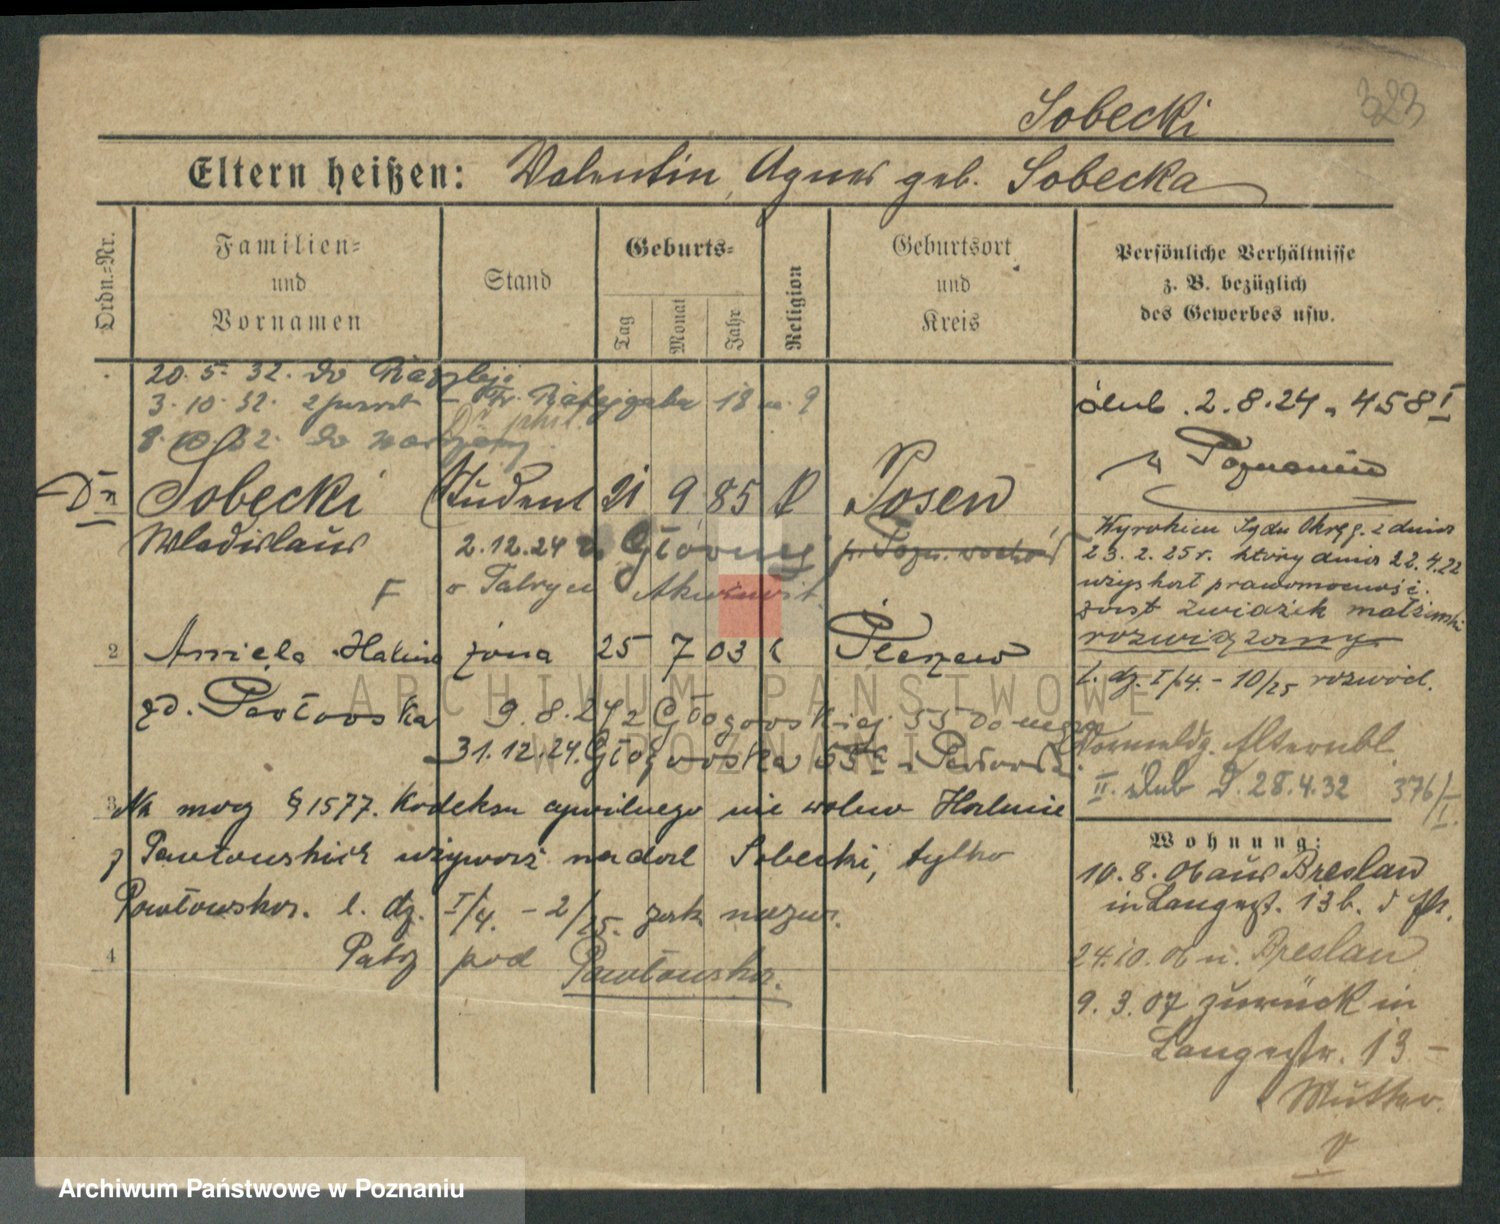 323
Sobecki
Eltern heißen: Valentin, Agnes geb. Sobecka
Ordn.=Nr.
Familien= und Vornamen
Stand
Geburts=
Tag
Monat
Jahr
Religion
Geburtsort und Kreis
Persönliche Verhältnisse
z. B. bezüglich
des Gewerbes usw.
20. 5. 32. do
3. 10. 32.
Dr phil.
ślub 2.8.24 458 I
w Poznaniu
Sobecki Student 21 9 85 Posen
Wladislaus 2.12.24 z Główny
Wyrokiem Sądu Okręg. z dnia
23. 2. 25 r. który dnia 22.4.22
uzyskał prawomocność
został związek małżeński
rozwiązany
l. dz. I/4. - 10/25 rozwód.
2 Aniela Halina żona 25 7 03 k Pleszew
zd. Pawłowska 9. 8. 24 z Głogowskiej 55
31.12.24. Głogowska 55
II. ślub D. 28.4.32 376/I.
3 Na mocy § 1577. Kodeksu cywilnego nie wolno Halinie
z Pawłowskich używać nadal Sobecki, tylko
Pawłowska. l. dz. I/4. - 2/25.
4 Patrz pod Pawłowska.
Wohnung:
10. 8. 06 aus Breslau
in Langest. 13 b.
24.10. 06 n. Breslau
9. 3. 07 zurück in
Langestr. 13 -
Mutter.
ARCHIWUM PAŃSTWOWE
W POZNANIU
Archiwum Państwowe w Poznaniu